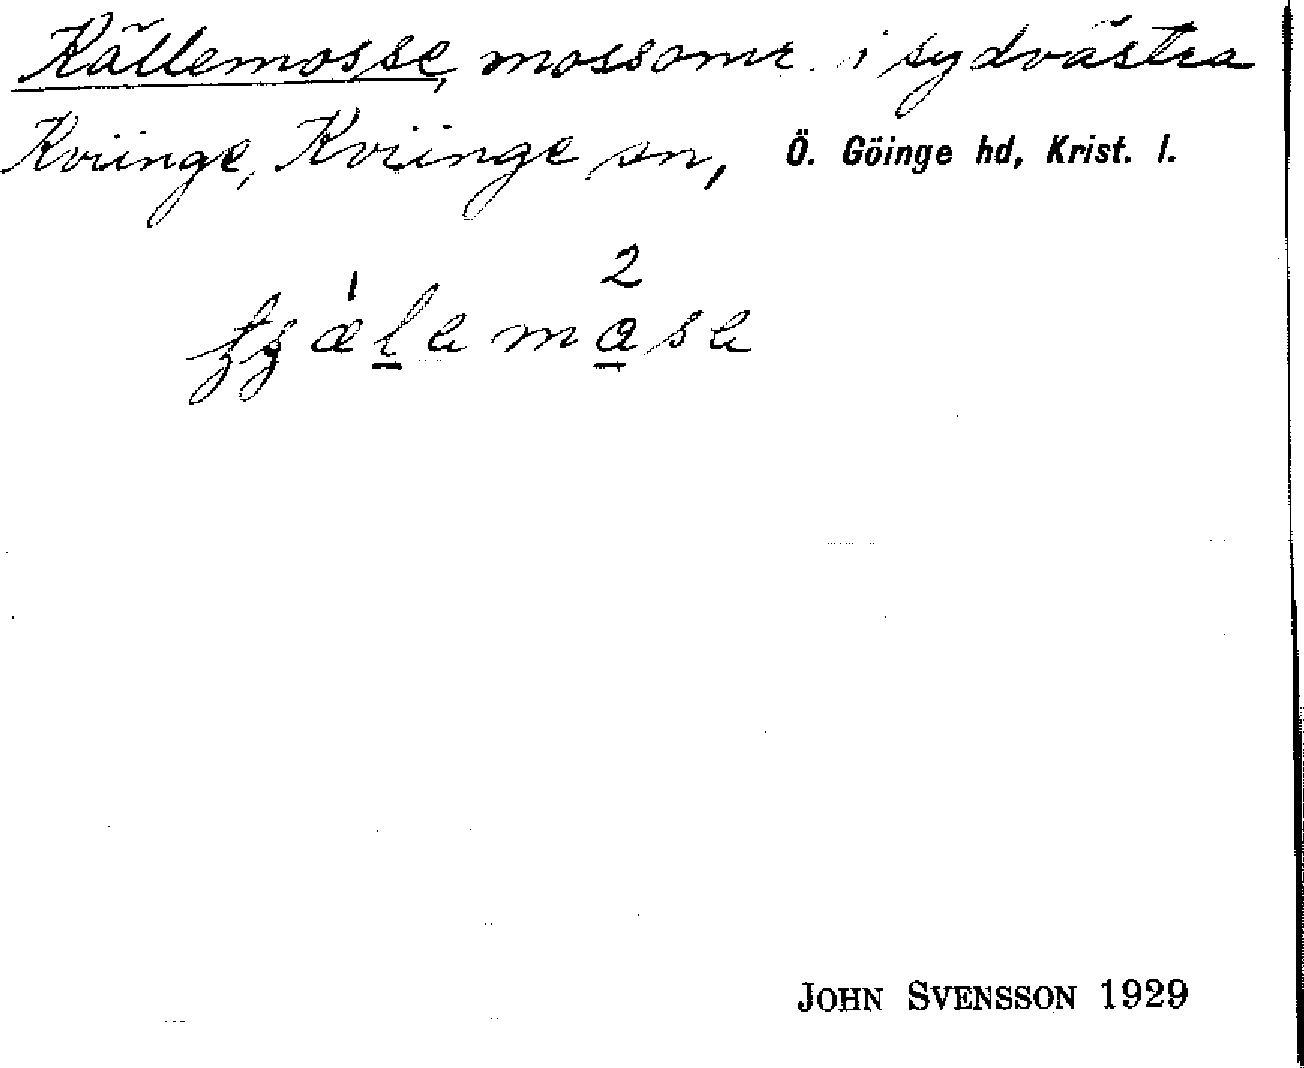 Källemosse, mossomr. i sydvästra
Kviinge, Kviinge sn, Ö. Göinge hd, Krist. l.
JOHN SVENSSON 1929